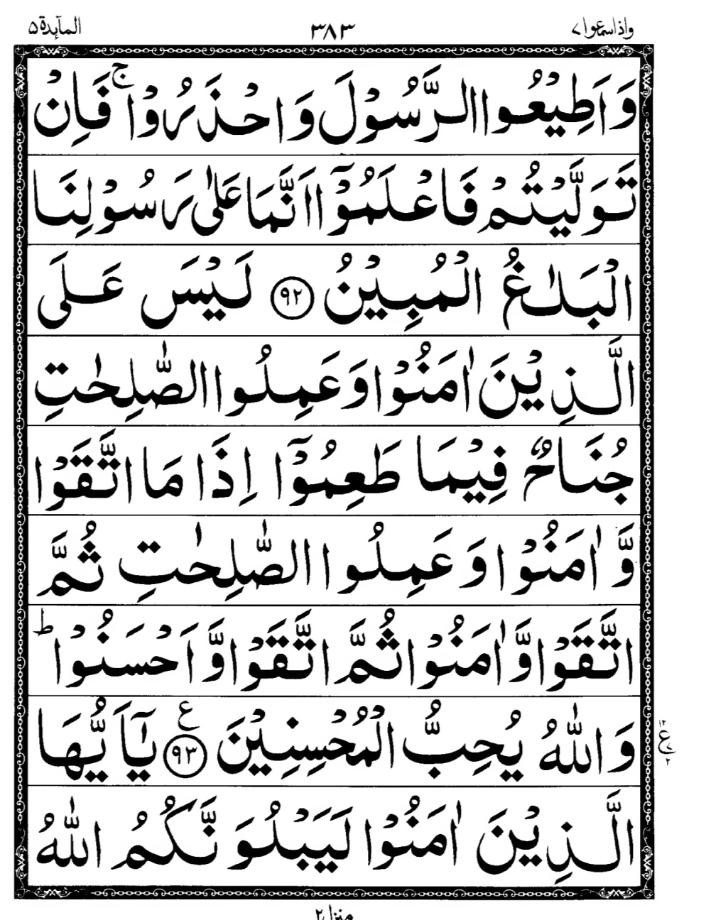 واذاسمعوا۷ ۳۸۳ المآیدة۵
وَاَطِيْعُوا الرَّسُوْلَ وَاحْذَرُوْا ۚ فَاِنْ
تَوَلَّيْتُمْ فَاعْلَمُوْٓا اَنَّمَا عَلٰى رَسُوْلِنَا
الْبَلٰغُ الْمُبِيْنُ ۹۲ لَيْسَ عَلَى
الَّذِيْنَ اٰمَنُوْا وَعَمِلُوا الصّٰلِحٰتِ
جُنَاحٌ فِيْمَا طَعِمُوْٓا اِذَا مَا اتَّقَوْا
وَّاٰمَنُوْا وَعَمِلُوا الصّٰلِحٰتِ ثُمَّ
اتَّقَوْا وَّاٰمَنُوْا ثُمَّ اتَّقَوْا وَّاَحْسَنُوْا ؕ
وَاللّٰهُ يُحِبُّ الْمُحْسِنِيْنَ ۹۳ ع يٰٓاَيُّهَا
ع ۱۲ ۷ ۲
الَّذِيْنَ اٰمَنُوْا لَيَبْلُوَنَّكُمُ اللّٰهُ
منزل۲